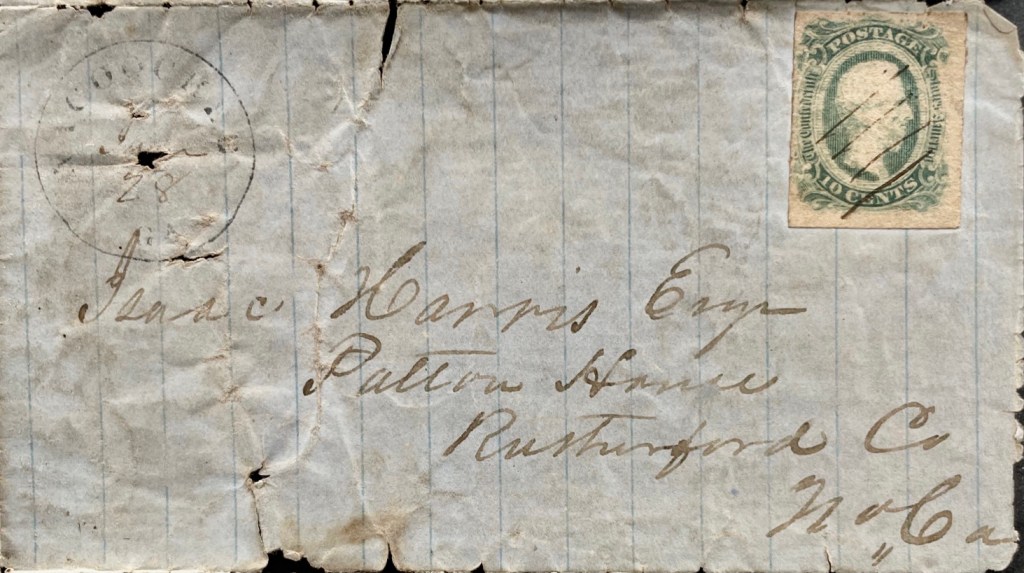 28
POSTAGE
The Confederate States of America
10 CENTS
Isaac Harris Esqr
Patton House
Rutherford Co
No Ca